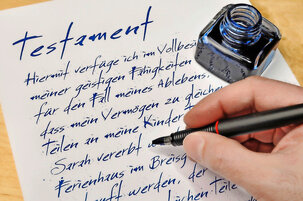 Testament
Hiermit verfüge ich im Vollbesi
meiner geistigen Fähigkeiten
für den Fall meines Ablebens,
dass mein Vermögen zu gleichen
Teilen an meine Kinder
Sarah vererbt w
Ferienhaus im Breisg
werden, der
lichen Teilen